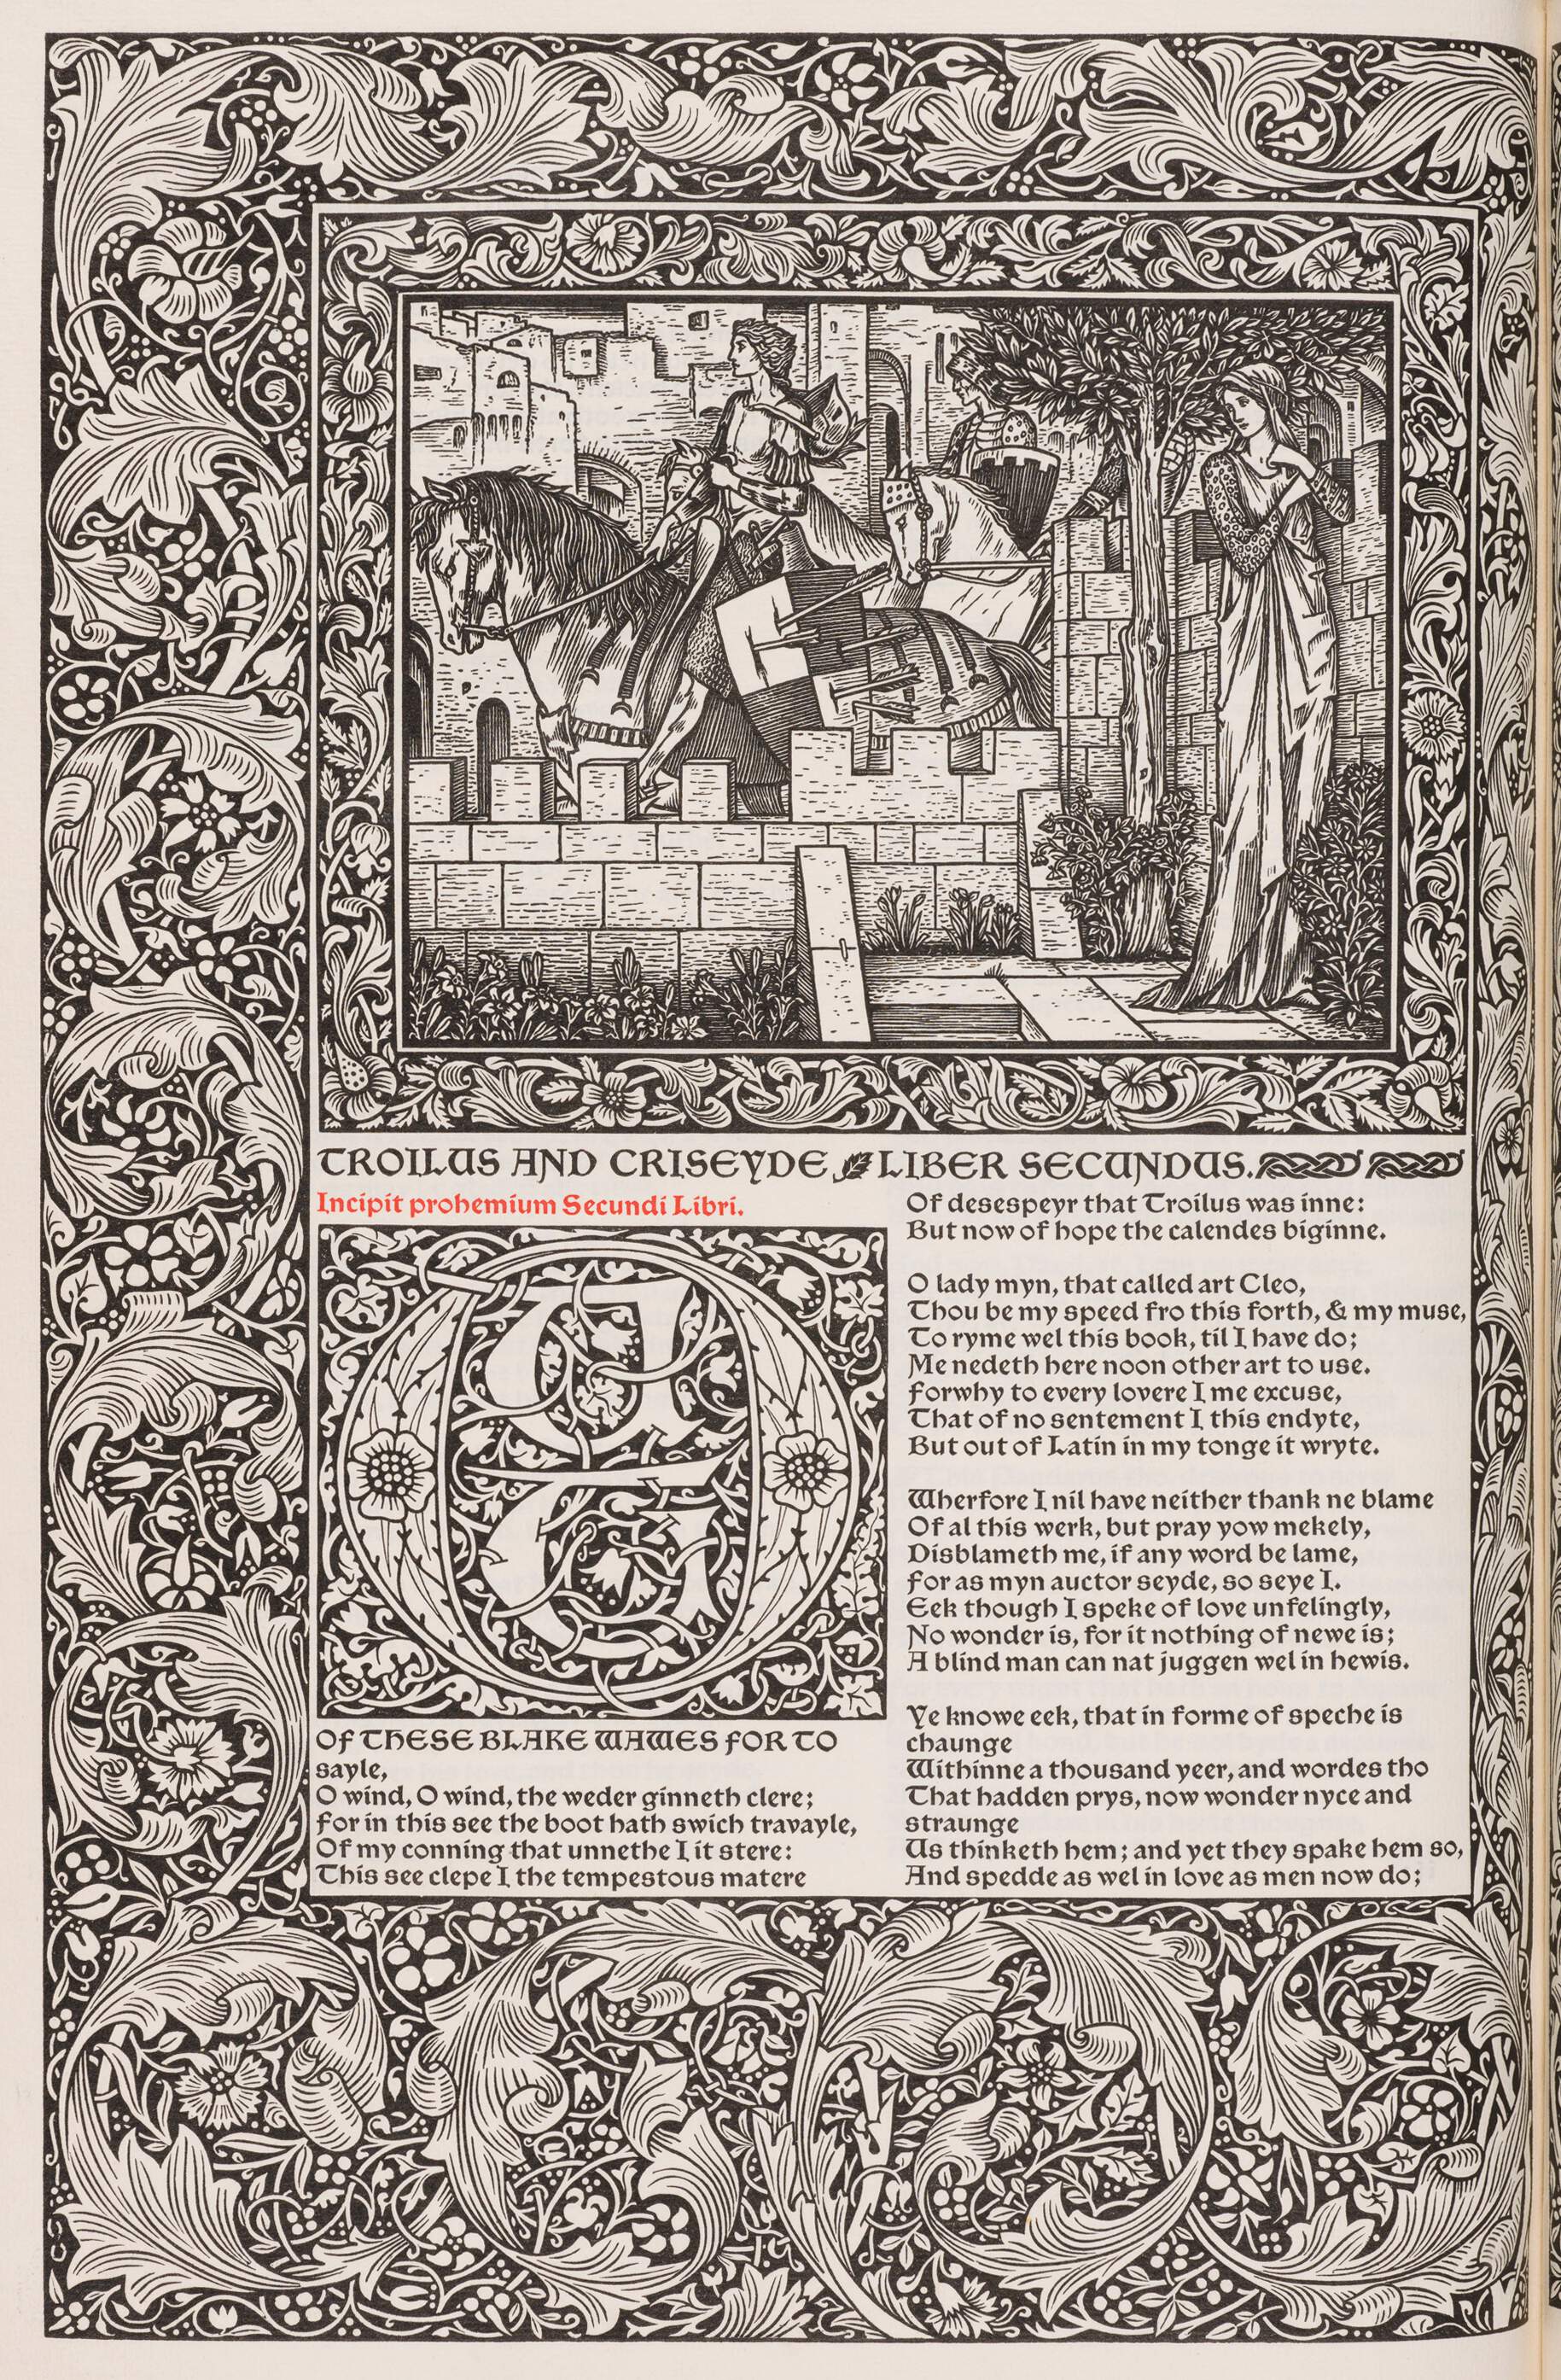 TROILUS AND CRISEYDE LIBER SECUNDUS.
Incipit prohemium Secundi Libri.
OUT
OF THESE BLAKE WAWES FOR TO
sayle,
O wind, O wind, the weder ginneth clere;
For in this see the boot hath swich travayle,
Of my conning that unnethe I it stere:
This see clepe I the tempestous matere
Of desespeyr that Troilus was inne:
But now of hope the calendes biginne.
O lady myn, that called art Cleo,
Thou be my speed fro this forth, & my muse,
To ryme wel this book, til I have do;
Me nedeth here noon other art to use.
Forwhy to every lovere I me excuse,
That of no sentement I this endyte,
But out of Latin in my tonge it wryte.
Wherfore I nil have neither thank ne blame
Of al this werk, but pray yow mekely,
Disblameth me, if any word be lame,
For as myn auctor seyde, so seye I.
Eek though I speke of love unfelingly,
No wonder is, for it nothing of newe is;
A blind man can nat juggen wel in hewis.
Ye knowe eek, that in forme of speche is
chaunge
Withinne a thousand yeer, and wordes tho
That hadden prys, now wonder nyce and
straunge
Us thinketh hem; and yet they spake hem so,
And spedde as wel in love as men now do;